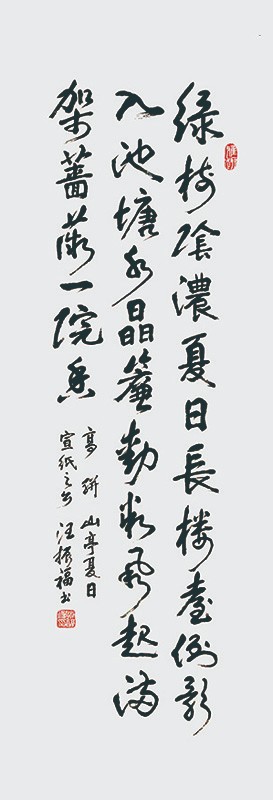 绿树陰濃夏日長楼臺倒影
入池塘水晶簾動微风起满
架薔薇一院香
高骈 山亭夏日
宣纸之乡 汪振福书